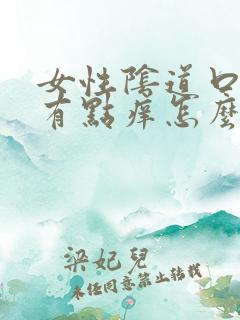 女性陰道口
有點痒怎麼
梁妃兒
未经同意禁止转载